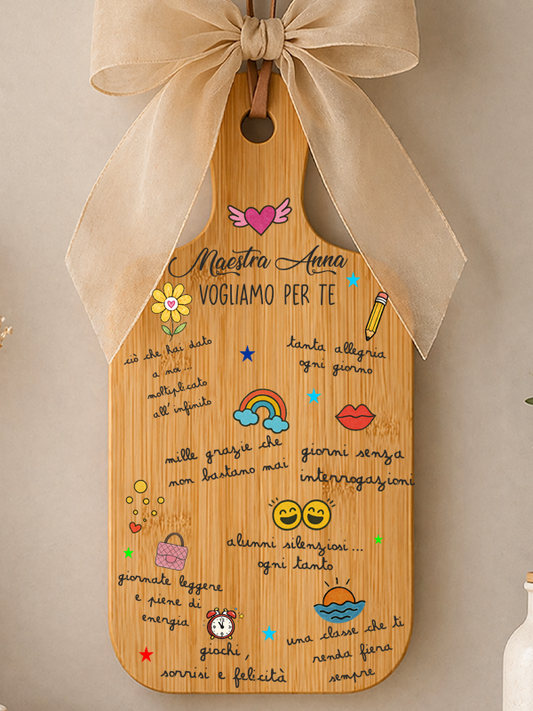 Maestra Anna
VOGLIAMO PER TE
ciò che hai dato
a noi...
moltiplicato
all'infinito
tanta allegria
ogni giorno
mille grazie che
non bastano mai
giorni senza
interrogazioni
alunni silenziosi...
ogni tanto
giornate leggere
e piene di
energia
giochi,
sorrisi e felicità
una classe che ti
renda fiera
sempre